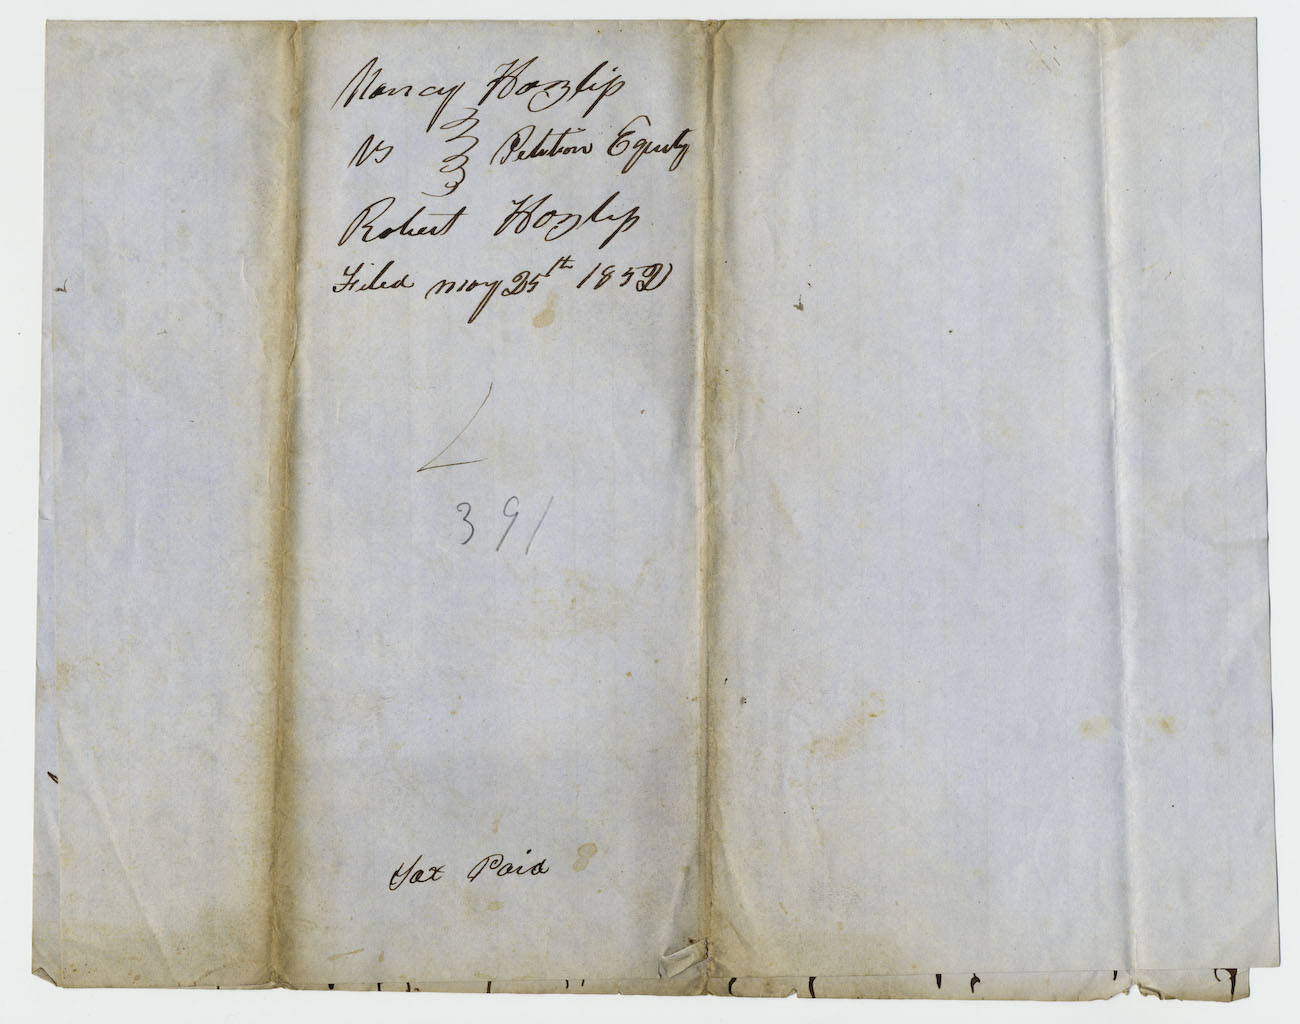 Nancy Hozlip
vs } Petition Equity
Robert Hozlip
Filed May 25th 1852
391
Tax Paid